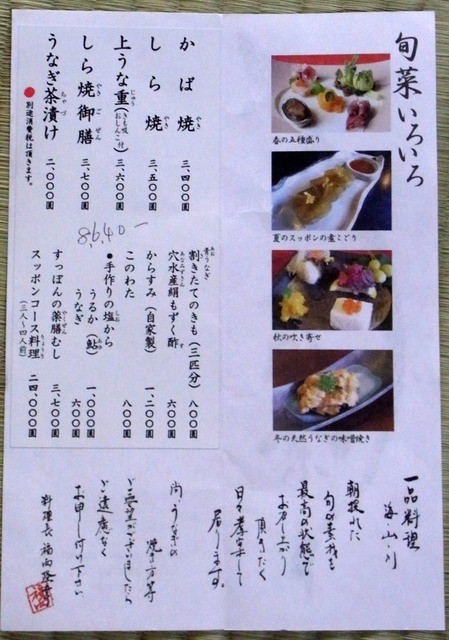 旬菜いろいろ
春の五種盛り
夏のスッポンの煮こごり
秋の吹き寄せ
冬の天然うなぎの味噌焼き
かば焼 三、四〇〇圓
やき
しら焼 三、五〇〇圓
やき
上うな重(きも吸・おしんこ付) 三、六〇〇圓
じゅう
しら焼御膳 三、七〇〇圓
やき ごぜん
うなぎ茶漬け 二、〇〇〇圓
ちゃづ
●別途消費税は頂きます。
8640-
青うなぎ
割きたてのきも(三匹分) 八〇〇圓
穴水産絹もずく酢 六〇〇圓
からすみ(自家製) 一、二〇〇圓
このわた 八〇〇圓
●手作りの塩から
うるか(鮎) 一、〇〇〇圓
うなぎ 六〇〇圓
すっぽんの薬膳むし 三、七〇〇圓
スッポンコース料理 二四、〇〇〇圓
(三人～四人前)
一品料理
海・山・川
朝採れた
旬の素材を
最高の状態で
お召し上がり
頂きたく
日々孝心して
居ります。
尚、うなぎの
焼き方等
ご要望がございましたら
ご遠慮なく
お申し付け下さい
料理長